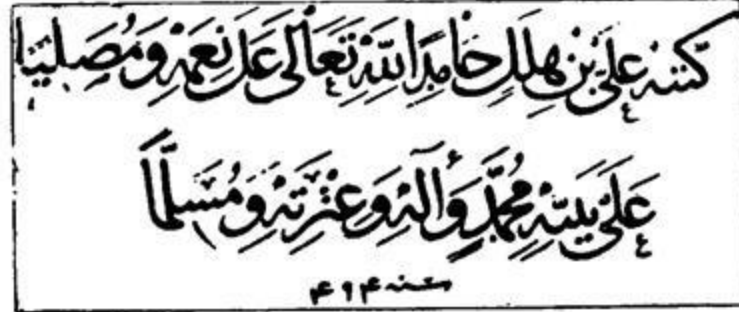 كتبه علي بن هلال حامدا لله تعالى على نعمه ومصليا
على نبيه محمد وآله وعترته ومسلما
سنه ۴۹۴